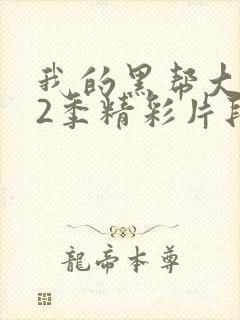 我的黑帮大
2季精彩片段
龍帝本尊